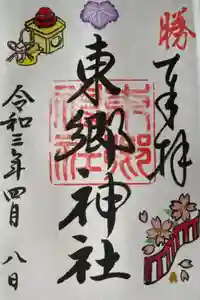 勝
奉拝
東郷神社
令和三年四月八日